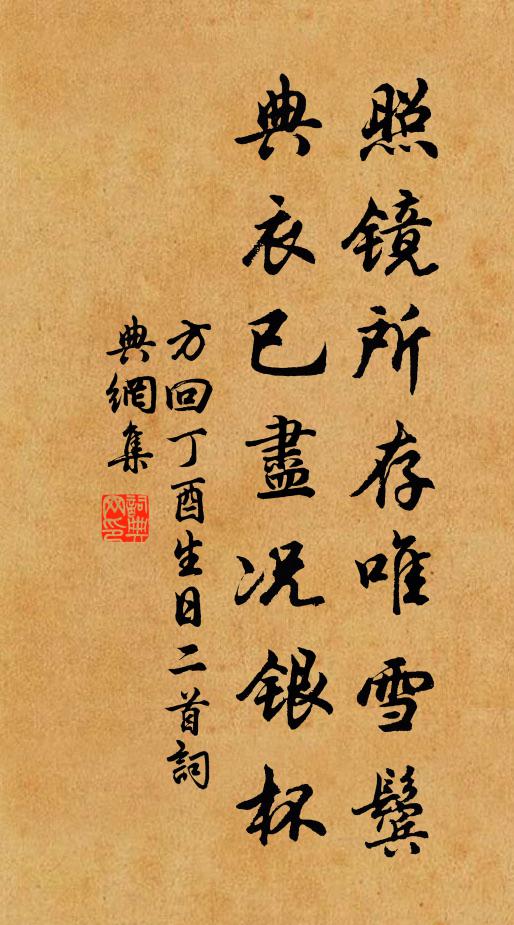 照镜所存唯雪鬓
典衣已盡况银杯
方回丁酉生日二首詞
典網集
詞典網印